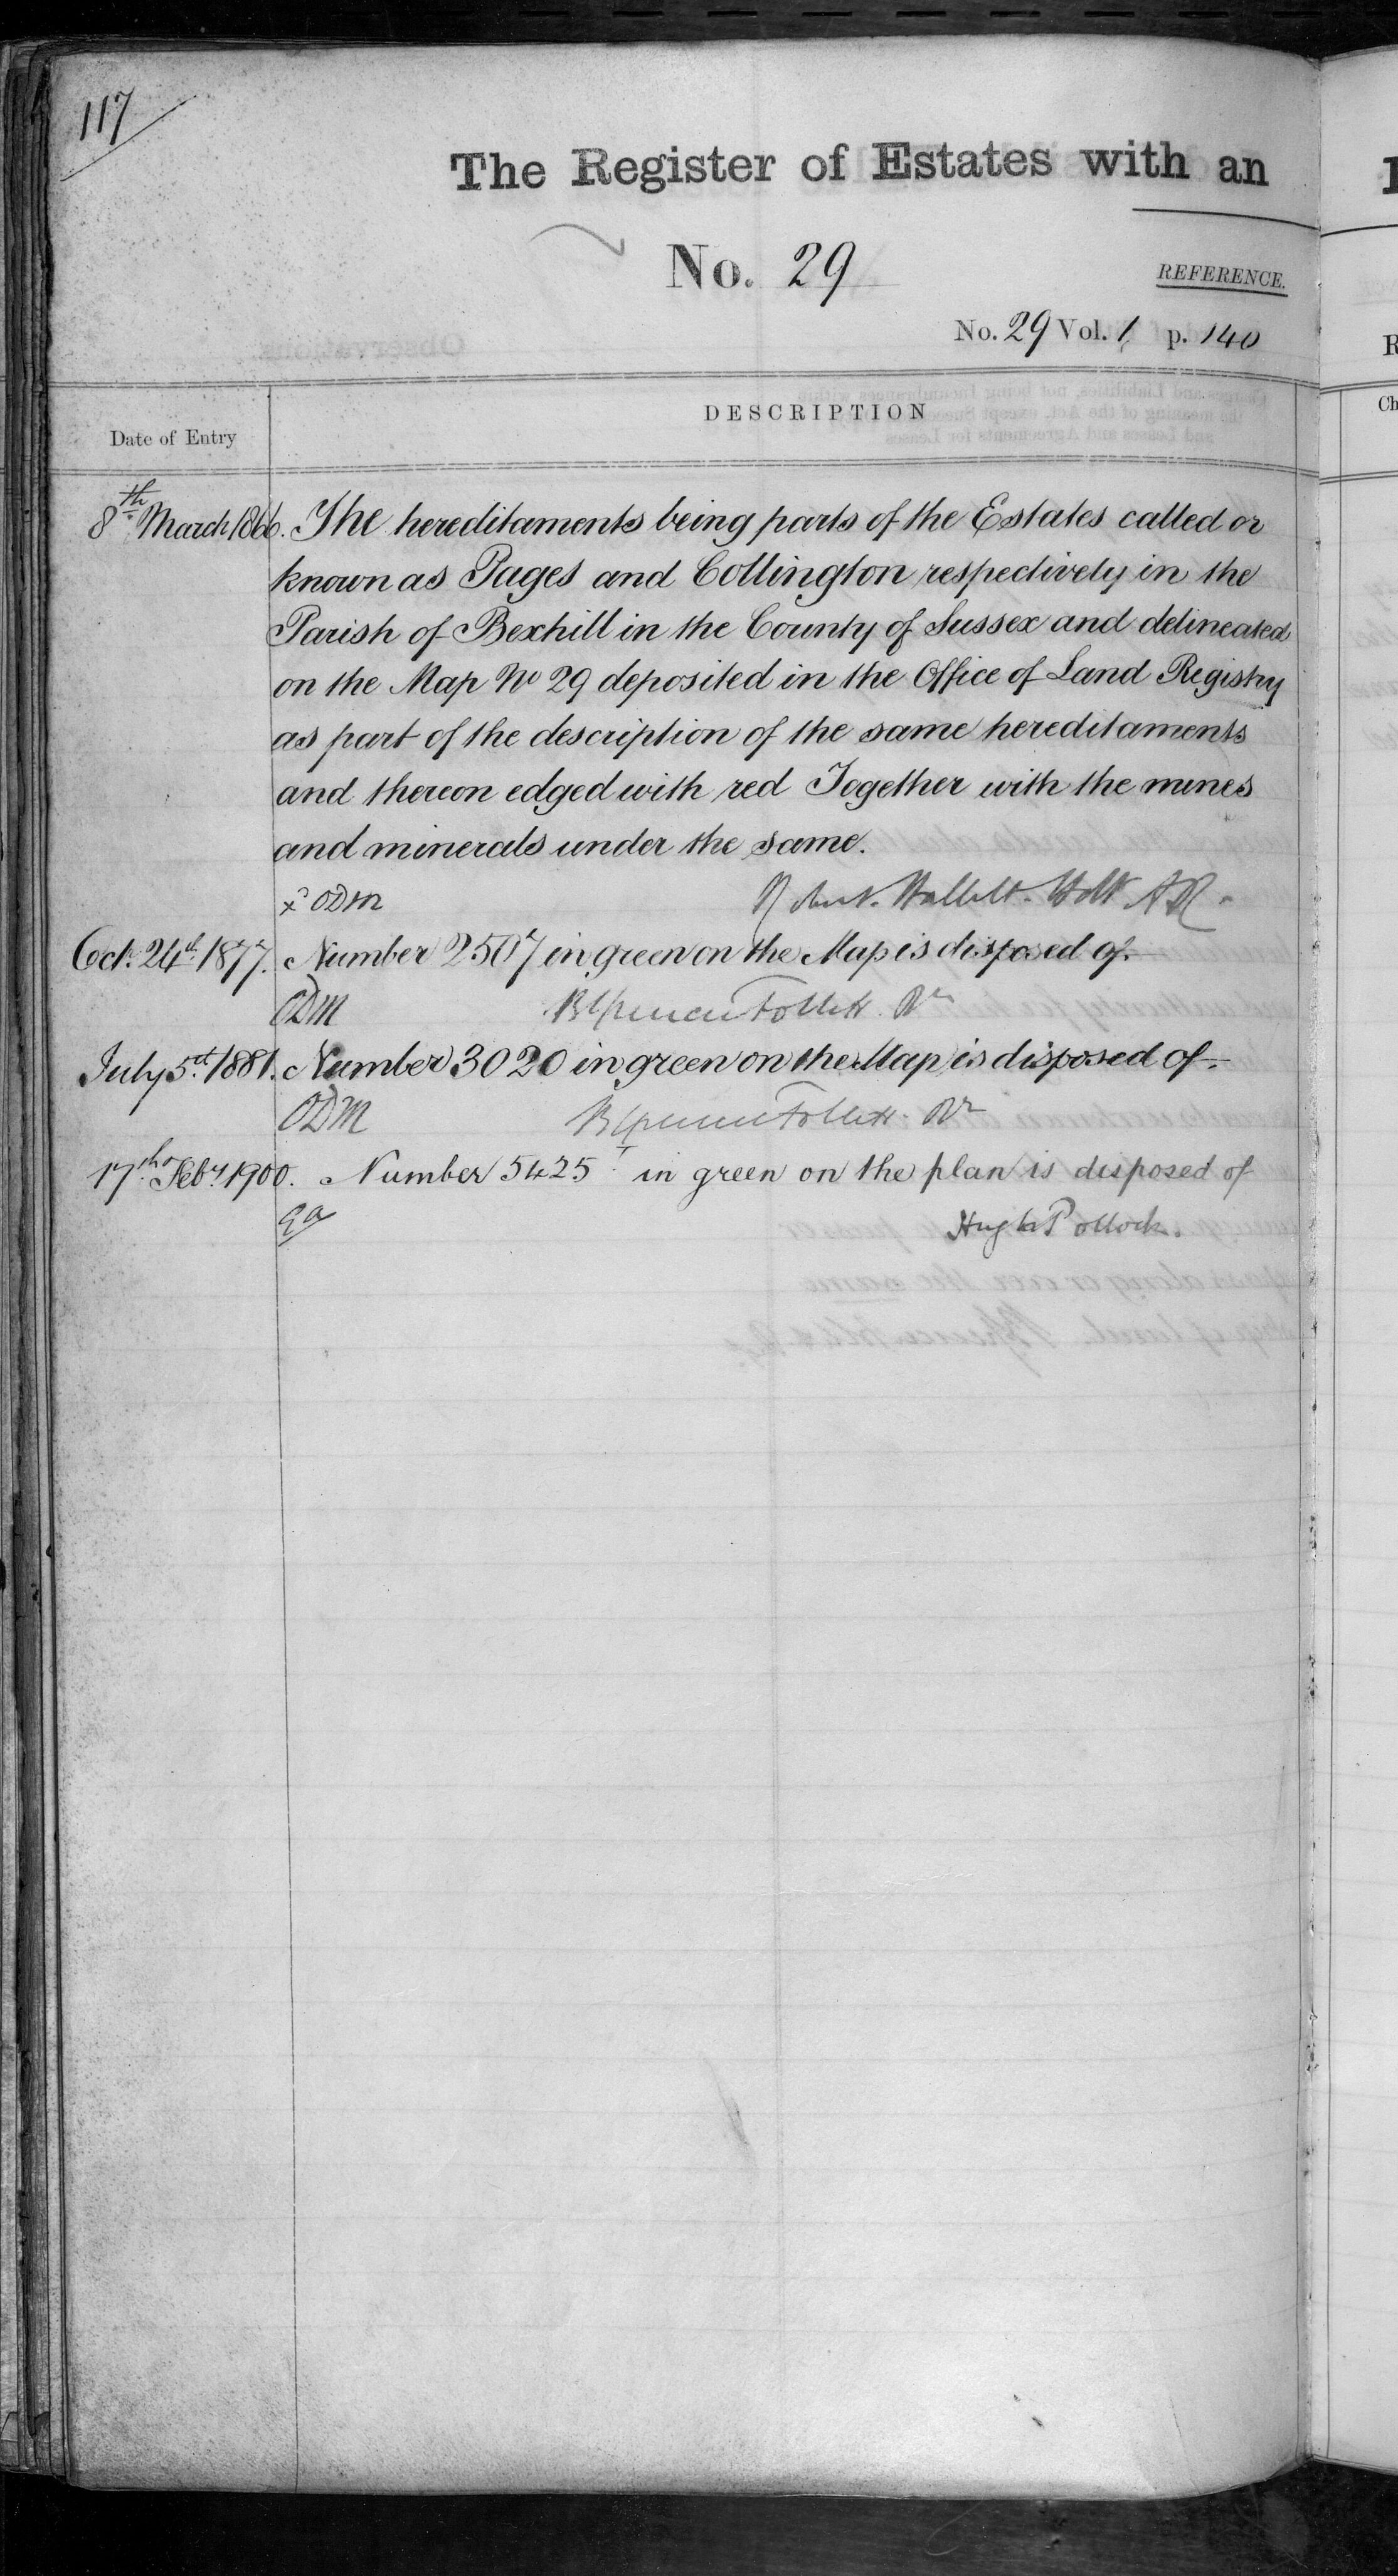 117
The Register of Estates with an
No. 29
REFERENCE.
No. 29 Vol. 1, p. 140
Date of Entry
DESCRIPTION
8th March 1866. The hereditaments being parts of the Estates called or
known as Pages and Collington respectively in the
Parish of Bexhill in the County of Sussex and delineated
on the Map No 29 deposited in the Office of Land Registry
as part of the description of the same hereditaments
and thereon edged with red Together with the mines
and minerals under the same.
x ODM Robert Hallett Holt A.R.
Oct. 24th 1877. Number 2507 in green on the Map is disposed of.
ODM BSpencer Follett. Rr
July 5th 1881. Number 3020 in green on the Map is disposed of.
ODM BSpencer Follett. Rr
17th Feby 1900. Number 5425 in green on the plan is disposed of
Hugh Pollock.